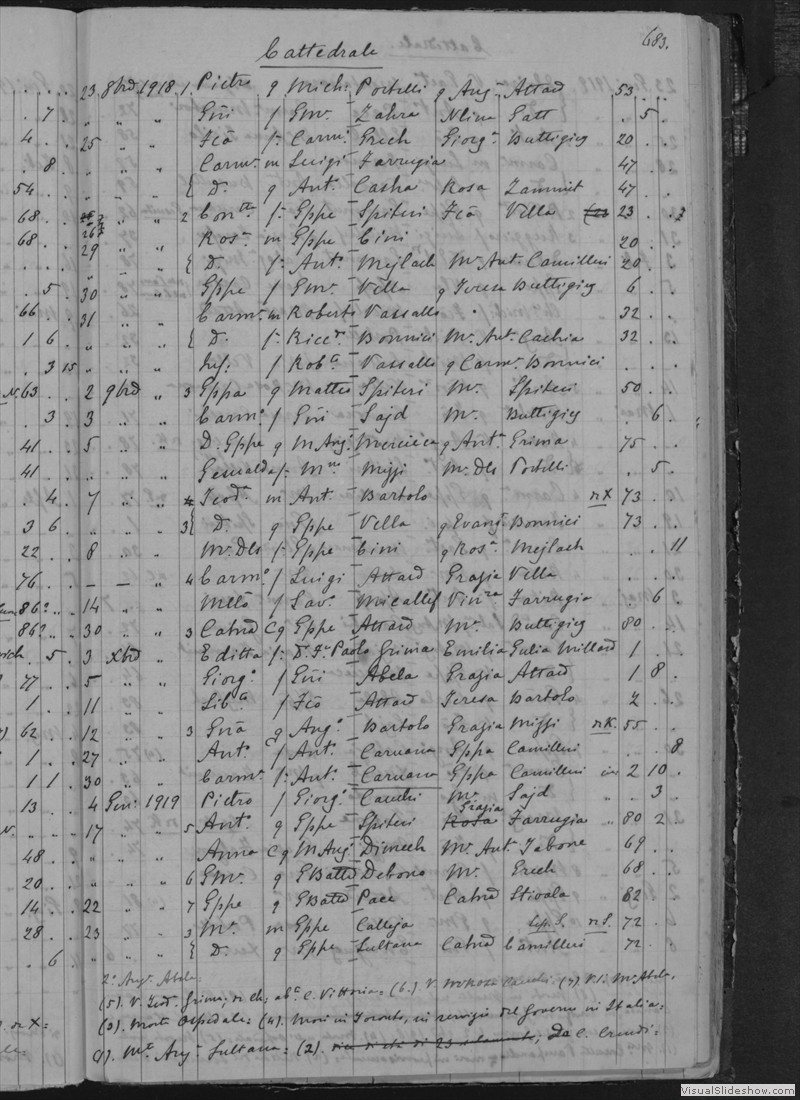 683.
Cattedrale
. . . . 23. 8brd. 1918. 1. Pietro q Mich: Portelli q Ang: Attard 53 . .
. 7 . . „ „ „ Giñi f Gmr. Zahra Nlina Gatt . 5 .
4 . . . 25 „ „ Fcõ f: Carmr. Grech Giorga. Buttigieg 20 . .
. 8 . . „ „ „ Carmr. m Luigi Farrugia 47 . .
54 . . . „ „ „ { D. q Ant. Casha Rosa Zammit 47 . .
68 . . „ „ 2 f: Gppe Spiteri Fcã Villa 23 . .
68 . . 26 „ „ Rosa. m Gppe Cini 20 . .
. . . . 29 „ „ { D. f: Ant. Mejlach Mr. Ant. Camilleri 20 . .
. 5 . . 30 „ „ Gppe f Gmr. Vella q Teresa Buttigieg 6 . .
66 . . . 31 „ „ Carmr. m Roberto Vassallo . 32 . .
1 6 . . „ „ „ { D. f: Ricc. Bonnici Mr. Ant. Cachia 32 . .
. 3 15 „ „ „ Inf. f Rob. Vassallo q Carmr. Bonnici . . .
N. 63 . . 2 9brd „ 3 Gppa q Matteo Spiteri Mr. Spiteri 50 . .
. 3 . 3 „ „ Carmo. f Giñi Sajd Mr. Buttigieg . 6 .
41 . . 5 „ „ D. Gppe q M Ang. Mercieca q Ant. Grima 75 . .
41 . . „ „ „ Gesualda f: Mr. Missi Mr. Dls Portelli . 5 .
. 4 . 7 „ „ Teod. m Ant. Bartolo nX 73 . .
3 6 . „ „ „ 3 { D. q Gppe Vella q Evang. Bonnici 73 . .
22 . . 8 „ „ Mr. Dls f: Gppe Cini q Rosa. Mejlach . . 11
76 . . — — „ 4 Carmo. f Luigi Attard Grazia Vella . . .
862 „ . 14 „ „ f Savo. Micallef Vinra Farrugia . 6 .
862 . . 30 „ „ 3 Catnd C q Gppe Attard Mr. Buttigieg 80 . .
. 5 . 3 Xbrd „ Editta f: D. Paolo Grima Emilia Gulia Millard 1 . .
77 . . 5 „ „ Giorga. f Giñi Abela Grazia Attard 1 8 .
1 . . 11 „ „ Liba f Fcõ Attard Teresa Bartolo 2 . .
62 . . 12 „ „ 3 Giñã q Ang. Bartolo Grazia Missi nX. 55 . .
1 . . 27 „ „ Ant. f Ant. Caruana Gppa Camilleri . . 8
1 1 . 30 „ „ Carmr. f: Ant. Caruana Gppa Camilleri in 2 10 .
13 . . 4 Gen. 1919 Pietro f Giorgo. Cauchi Mr. Sajd „ 3 .
Grazia
17 „ „ 5 Ant. q Gppe Spiteri Rosa Farrugia „ 80 2
48 . . „ „ „ Anna C q M Ang. Dimech Mr. Ant. Tabone 69 . .
20 . . „ „ „ 6 Gmr. q GBattd Debono Mr. Grech 68 . .
14 . . 22 „ „ 7 Gppe q GBattd Pace Catnd Stivala 82
28 . . 23 „ „ 3 Mr. m Gppe Calleja nS. 72 .
. 6 . „ „ „ { D. q Gppe Sultana Catnd Camilleri 72 .
2a. Ang. Abela
(5). V. Teod. Grima; ab. C. Vittoria: (6.) V. Cauchi (7) V. Mr. Abela.
(3). Morto Ospedale: (4). Mori in Toronto, in servizio del Governo in Italia:
(1). Mr. Ang. Sultana: (2). Da C. Cumbi:
VisualSlideshow.com